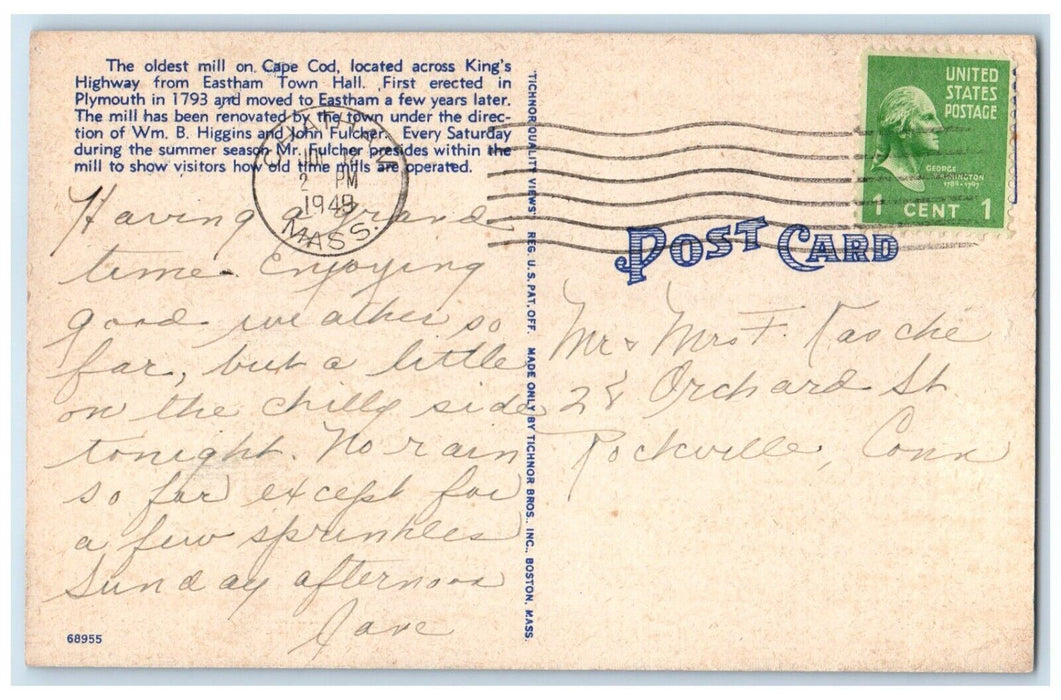 The oldest mill on Cape Cod, located across King's
Highway from Eastham Town Hall. First erected in
Plymouth in 1793 and moved to Eastham a few years later.
The mill has been renovated by the town under the direc-
tion of Wm. B. Higgins and John Fulcher. Every Saturday
during the summer season Mr. Fulcher presides within the
mill to show visitors how old time mills are operated.
CHATHAM
2 PM
1949
MASS.
Having a grand
time. Enjoying
good weather so
far, but a little
on the chilly side
tonight. No rain
so far except for
a few sprinkles
Sunday afternoon
Jane
68955
"TICHNOR QUALITY VIEWS" REG. U. S. PAT. OFF. MADE ONLY BY TICHNOR BROS., INC., BOSTON, MASS.
UNITED
STATES
POSTAGE
GEORGE
WASHINGTON
1789-1797
1 CENT 1
POST CARD
Mr & Mrs F. Rasche
28 Orchard St
Rockville, Conn